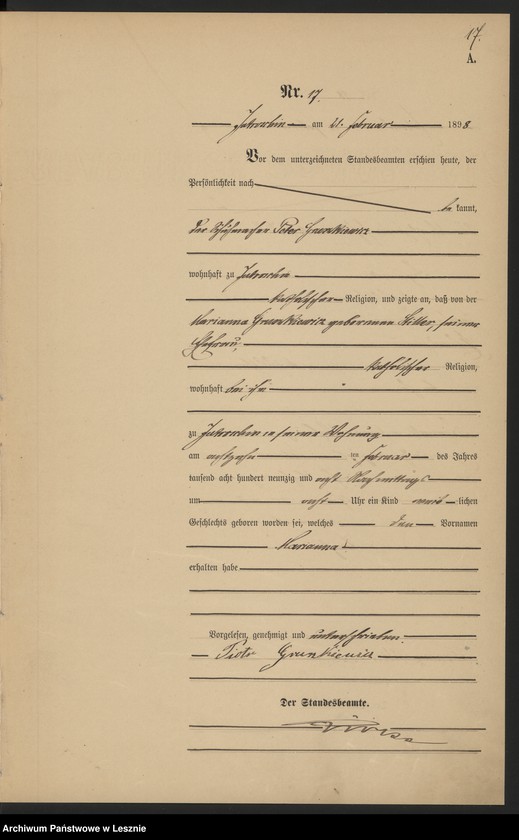 17.
A.
Nr. 17.
Jutroschin am 21. Februar 1898
Vor dem unterzeichneten Standesbeamten erschien heute, der
Persönlichkeit nach
be kannt,
der Schuhmacher Peter Grunkiewicz
wohnhaft zu Jutroschin
katholischer Religion, und zeigte an, daß von der
Marianna Grunkiewicz geborenen Hiller, seiner
Ehefrau,
katholischer Religion,
wohnhaft bei ihm
zu Jutroschin in seiner Wohnung
am achtzehn ten Februar des Jahres
tausend acht hundert neunzig und acht Nachmittags
um acht Uhr ein Kind weib lichen
Geschlechts geboren worden sei, welches den Vornamen
Marianna
erhalten habe
Vorgelesen, genehmigt und unterschrieben.
Piotr Grunkiewicz
Der Standesbeamte.
Archiwum Państwowe w Lesznie